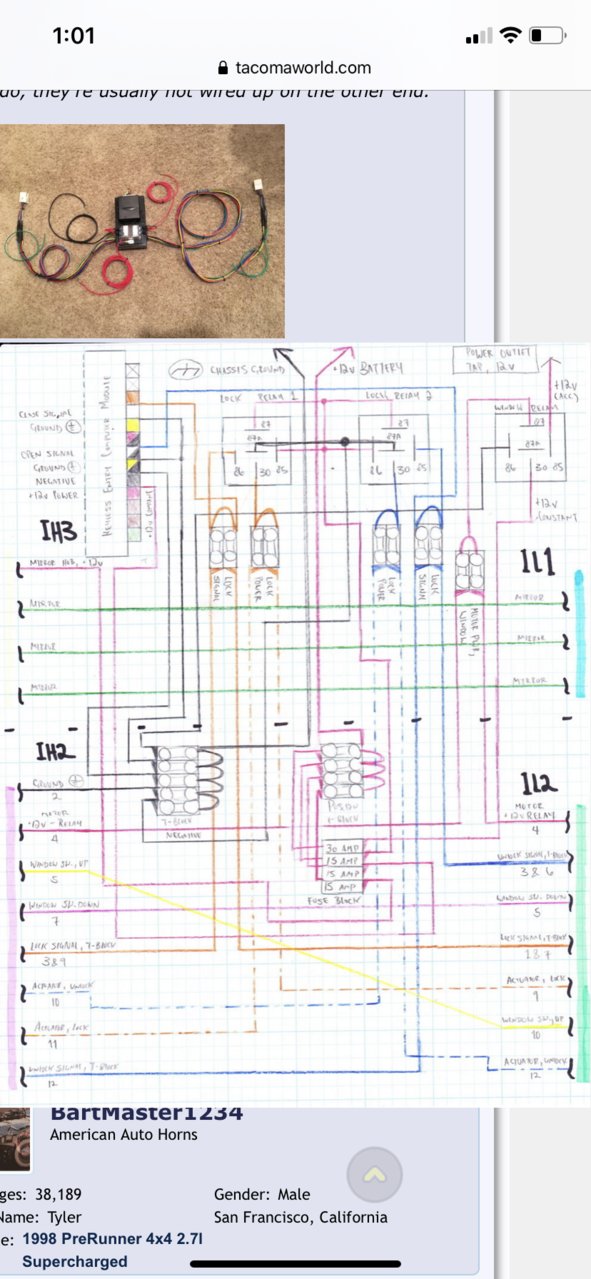 1:01
tacomaworld.com
do, they're usually not wired up on the other end.
CHASSIS GROUND
+12V BATTERY
POWER OUTLET
TAP, 12V
+12V
(ACC)
LOCK RELAY 1
LOCK RELAY 2
WINDOW RELAY
CLOSE SIGNAL
GROUND
OPEN SIGNAL
GROUND
NEGATIVE
+12V POWER
KEYLESS ENTRY COMPUTER MODULE
87
87A
86 30 85
87
87A
86 30 85
87
87A
86 30 85
+12V
CONSTANT
IH3
IL1
MIRROR HOB, +12V
LOCK
SIGNAL
LOCK
POWER
LOCK
POWER
LOCK
SIGNAL
MOTOR PWR,
WINDOW
MIRROR
MIRROR
MIRROR
MIRROR
MIRROR
MIRROR
IH2
IL2
GROUND
2
MOTOR
+12V - RELAY
4
T-BLOCK
NEGATIVE
POSITIV
T-BLOCK
MOTOR
+12V RELAY
4
30 AMP
15 AMP
15 AMP
15 AMP
FUSE BLOCK
WINDOW SW, UP
5
UNLOCK SIGNAL, T-BLOCK
3 & 6
WINDOW SW. DOWN
7
WINDOW SW. DOWN
5
LOCK SIGNAL, T-BLOCK
3&9
LOCK SIGNAL, T-BLOCK
1&7
ACTUATOR, UNLOCK
10
ACTUATOR, LOCK
9
ACTUATOR, LOCK
11
WINDOW SW, UP
10
UNLOCK SIGNAL, T-BLOCK
12
ACTUATOR, UNLOCK
12
BartMaster1234
American Auto Horns
ges: 38,189
Gender: Male
Name: Tyler
San Francisco, California
e: 1998 PreRunner 4x4 2.7l
Supercharged